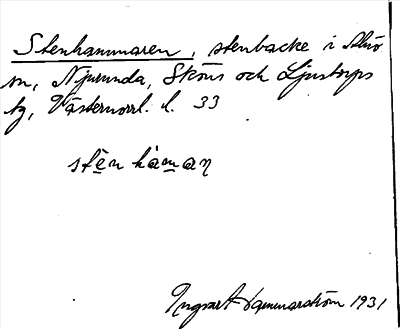 Stenhammaren, stenbacke i Alnö
sn, Njurunda, Sköns och Ljustorps
tg, Västernorrl. l. 33
stèn hàman
Ingvart Hammarström 1931